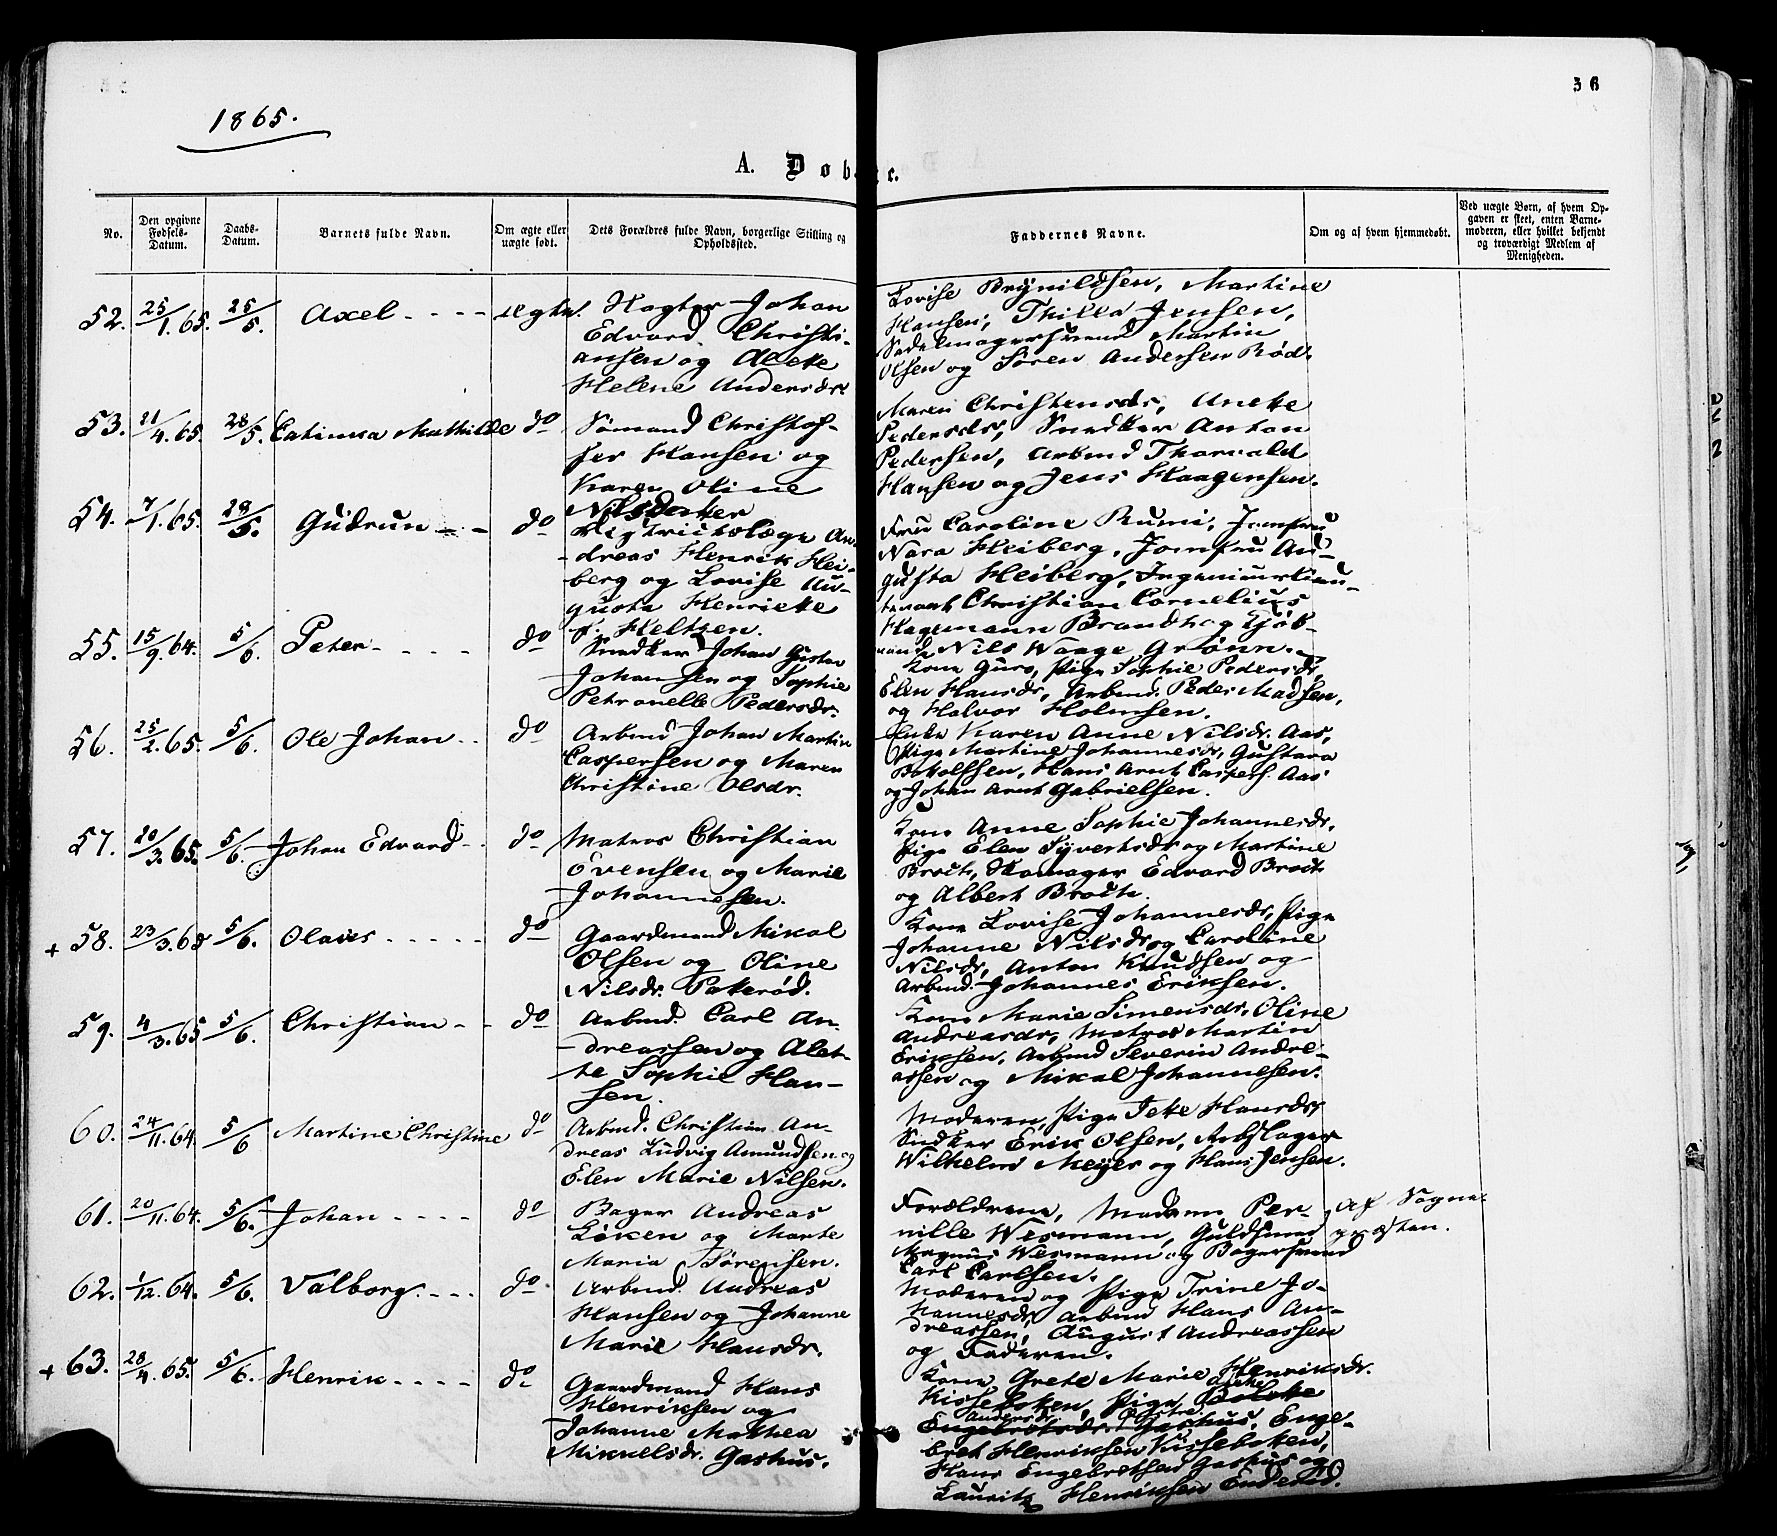 36
1865.
A. Døbte.
No.
Den opgivne Fødsels-Datum.
Daabs-Datum.
Barnets fulde Navn.
Om ægte eller uægte født.
Dets Forældres fulde Navn, borgerlige Stilling og Opholdssted.
Faddernes Navne.
Om og af hvem hjemmedøbt.
Ved uægte Børn, af hvem Opgaven er skeet, enten Barnemoderen, eller hvilket bekjendt og troværdigt Medlem af Menigheden.
52. 25/1. 65. 25/5. Axel
Johan
Edvard Christi-
ansen og
Helene Andersdr
Lovise Brynildsen, Martine
Hansen, Thilla Jensen,
Sadelmagersvend Martin
Olsen og Søren Andersen Rød.
53. 21/4. 65. 28/5. Catinka Mathilde do
Sømand Christof-
fer Hansen og
Karen Oline
Nilsdatter
Maren Christensdr,
Pedersdr, Snedker Anton
Pedersen, Arbmd Thorvald
Hansen og Jens Haagensen.
54. 7/1. 65. 29/5. Gudrun do
Districtslæge An-
dreas Henrik Hei-
berg og Lovise Au-
gusta Henriette
f. Heltzen.
Fru Caroline Jomfru
Nara Heiberg, Jomfru Au-
gusta Heiberg, Ingenieurlieu-
tenant Christian Cornelius
Hagemann Brandt og Kjøb-
mand Nils Waage Grønn.
55. 15/9. 64. 5/6. Peter do
Snedker Johan Gustav
Johansen og Sophie
Petronelle Pedersdr.
Kone Guro, Pige Sophie Pedersdr,
Elen Hansdr, Arbmd. Peder Madsen,
og Halvor Holmsen.
56. 25/2. 65. 5/6. Ole Johan do
Arbmd Johan Martin
Caspersen og Maren
Christine Olsdr.
Enke Karen Anne Nilsdr. Aas,
Pige Martine Johannesdr, Gustava
Hans Arnt Caspers. Aas
og Johan Arnt Gabrielsen.
57. 20/3. 65. 5/6. Johan Edvard do
Matros Christian
Evensen og Marie
Johannesen.
Kone Anne Sophie Johannesdr.
Pige Elen Syvertsdr og Martine
Brodt, Skomager Edvard Brodt
og Albert Brodt.
+ 58. 23/3. 65 5/6. Olaves do
Gaardmand Mikal
Olsen og Oline
Nilsdr. Pakerød.
Kone Lovise Johannesdr, Pige
Johanne Nilsdr og Caroline
Nilsdr, Anton Knudsen og
Arbmd. Johannes Eriksen.
59. 4/3. 65 5/6. Christian do
Arbmd. Carl An-
dreassen og Alet-
te Sophie Han-
sen.
Kone Marie Simensdr. Oline
Andreasdr, Matros Martin
Eriksen, Arbmd Severin Andre-
assen og Mikal Johannesen.
60. 24/11. 64 5/6 Martine Christine do
Arbmd. Christian An-
dreas Ludvig Amundsen og
Elen Marie Nilsen.
Moderen, Pige Hansdr
Snedker Erik Olsen,
Wilhelm Meyer og Hans Jensen.
61. 20/11. 64. 5/6. Johan do
Bager Andreas
Løken og Marte
Maria Sørensen.
Forældrene, Madam Per-
nille Wesmann, Guldsmed
Magnus Wesmann og Bagersvend
Carl Carlsen.
Af Sogne-
præsten.
62. 1/12. 64. 5/6. Valborg do
Arbmd. Andreas
Hansen og Johanne
Marie Hansdr.
Moderen og Pige Trine Jo-
hannesdr, Arbmd Hans An-
dreassen, August Andreassen
og Faderen.
+ 63. 28/4. 65. 5/6. Henrik do
Gaardmand Hans
Henriksen og
Johanne Mathea
Mikkelsdr. Gashus.
Kone Grete Marie Henriksdr.
Kisseboken, Pige
Andersdr
Gashus, Enge-
bret Henriksen Kisseboken,
Hans Engebretsen Gashus og
Lauritz Henriksen Enderød.